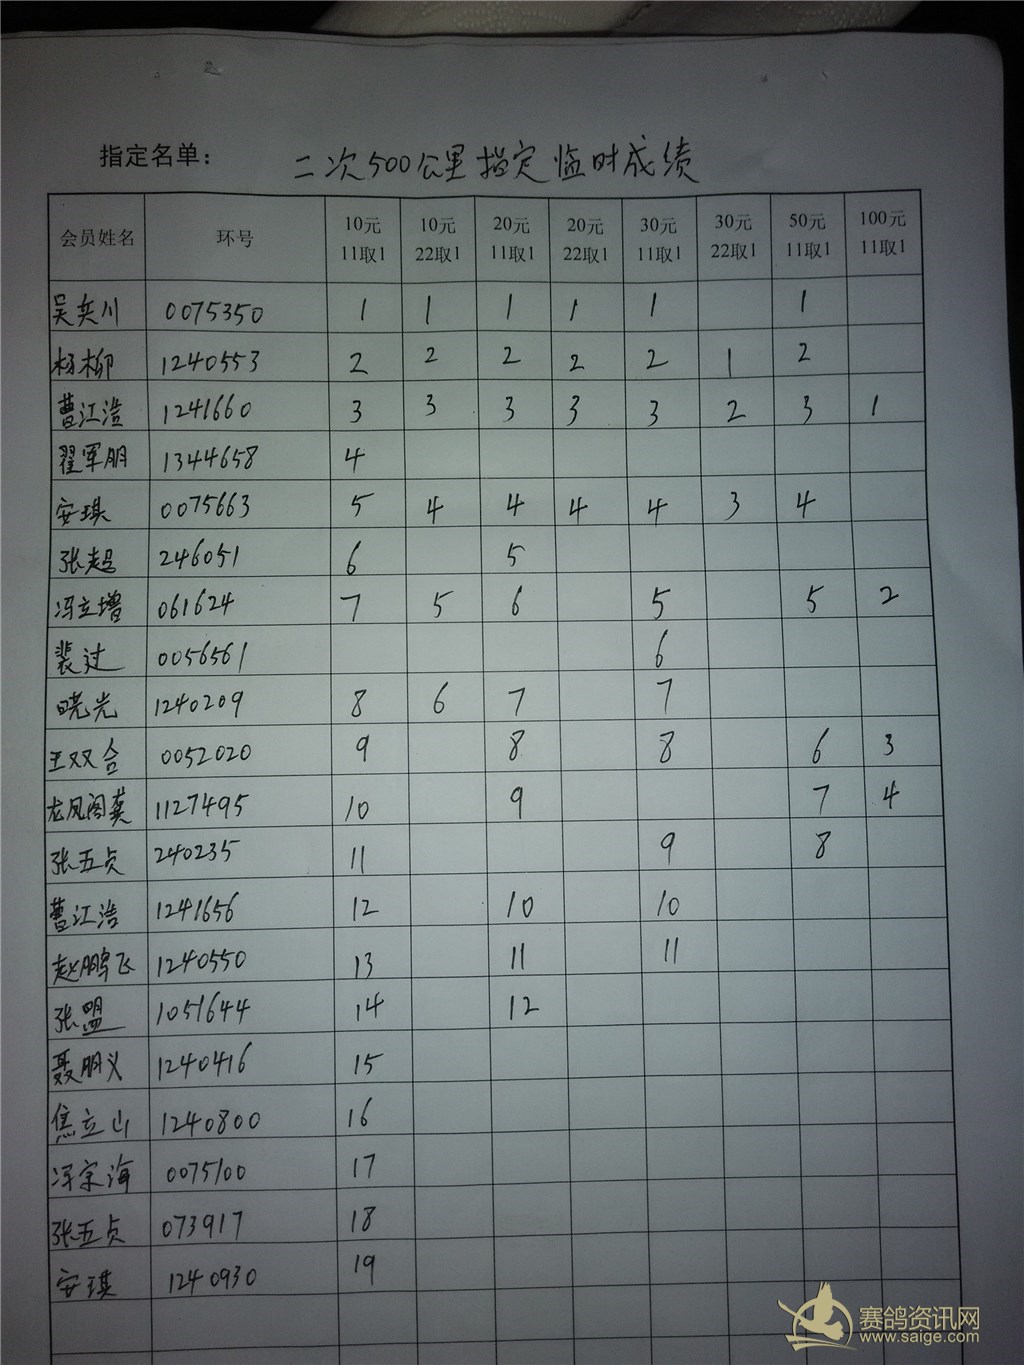 指定名单： 二次500公里指定临时成绩
会员姓名 环号 10元11取1 10元22取1 20元11取1 20元22取1 30元11取1 30元22取1 50元11取1 100元11取1
吴奕川 0075350 1 1 1 1 1 1
杨柳 1240553 2 2 2 2 2 1 2
曹江浩 1241660 3 3 3 3 3 2 3 1
翟军朋 1344658 4
安琪 0075663 5 4 4 4 4 3 4
张超 246051 6 5
冯立增 061624 7 5 6 5 5 2
裴过 0056561 6
曉光 1240209 8 6 7 7
王双合 0052020 9 8 8 6 3
龙凤阁龚 1127495 10 9 7 4
张五贞 240235 11 9 8
曹江浩 1241656 12 10 10
赵鹏飞 1240550 13 11 11
张盟 1051644 14 12
聂朋义 1240416 15
焦立山 1240800 16
冯宗海 0075100 17
张五贞 073917 18
安琪 1240930 19
赛鸽资讯网
www.saige.com